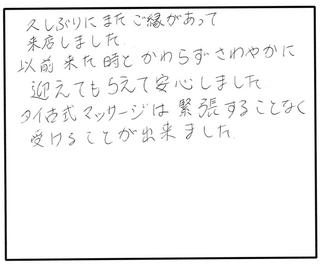 久しぶりにまたご縁があって
来店しました
以前来た時とかわらずさわやかに
迎えてもらえて安心しました
タイ古式マッサージは緊張することなく
受けることが出来ました.